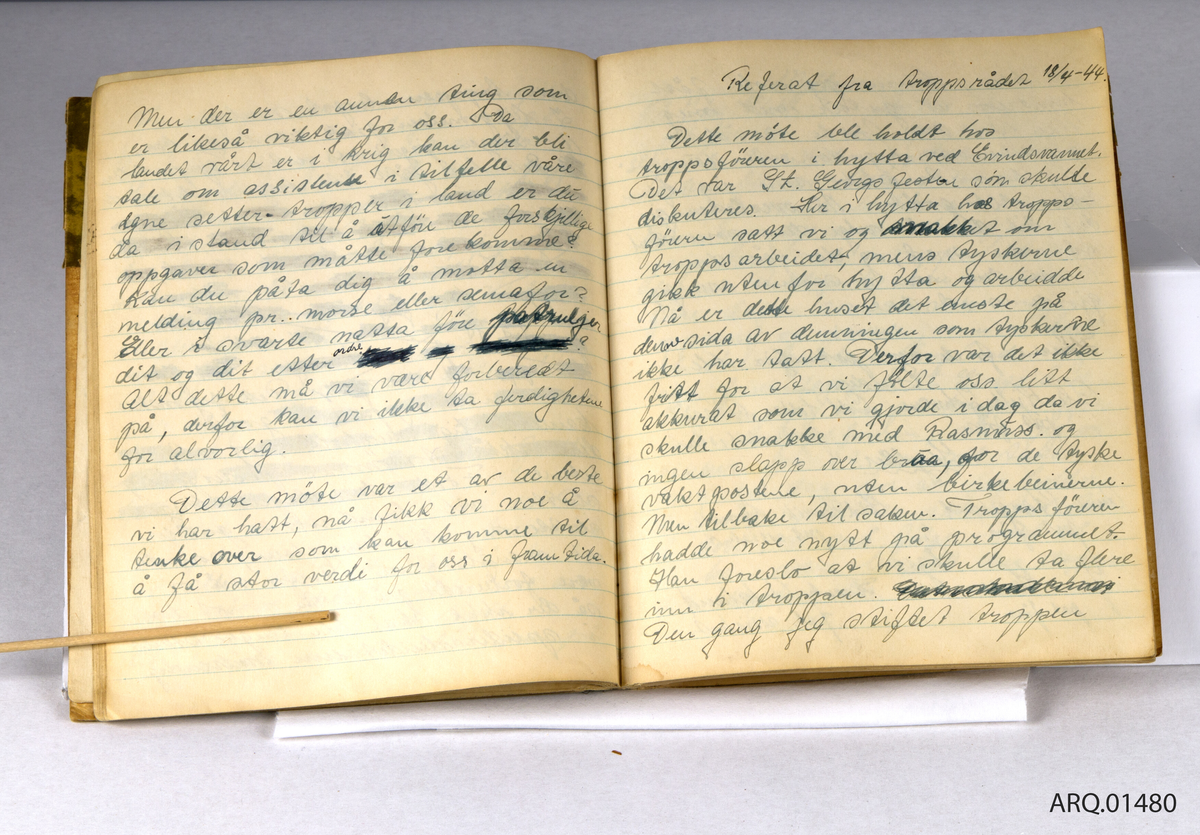 Men der er en annen ting som
er likeså viktig for oss. Da
landet vårt er i krig kan der bli
tale om assistense i tilfelle våre
egne setter tropper i land er du
da i stand til å utföre de forskjellige
oppgaver som måtte forekomme?
Kan du påta dig å motta en
melding pr. morse eller semafor?
Eller i svarte natta före patruljer
dit og dit etter ordre ?
Alt dette må vi være forberedt
på, derfor kan vi ikke ta ferdighetene
for alvorlig.
Dette möte var et av de beste
vi har hatt, nå fikk vi noe å
tenke over som kan komme til
å få stor verdi for oss i framtida.
Referat fra troppsrådet 18/4-44.
Dette möte ble holdt hos
troppsföreren i hytta ved Evindsvannet.
Det var St. Georgsfesten som skulle
diskuteres. Her i hytta hos tropps-
föreren satt vi og snakket om
troppsarbeidet, mens tyskerne
gikk uten for hytta og arbeidde
Nå er dette huset det eneste på
denne sida av demningen som tyskerne
ikke har tatt. Derfor var det ikke
fritt for at vi fölte oss litt
akkurat som vi gjorde i dag da vi
skulle snakke med Rasmuss. og
ingen slapp over brua, for de tyske
vaktpostene, uten birkebeinerne.
Men tilbake til saken. Troppsföreren
hadde noe nytt på programmet.
Han foreslo at vi skulle ta flere
inn i troppen.
Den gang jeg stiftet troppen
ARQ.01480